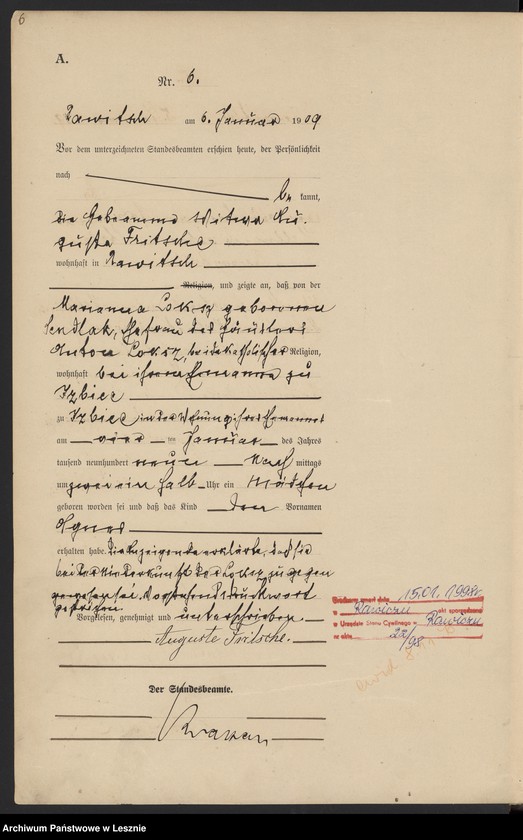 6
A.
Nr. 6.
Rawitsch am 6. Januar 1909
Vor dem unterzeichneten Standesbeamten erschien heute, der Persönlichkeit
nach
be kannt,
die Hebeamme Witwe Au-
guste Fritsche
wohnhaft in Rawitsch
Religion, und zeigte an, daß von der
Marianna Loksz geborenen
Sendlak, Ehefrau des Häuslers
Anton Loksz, beide katholischer Religion,
wohnhaft bei ihrem Ehemanne zu
Izbice
zu Izbice in der Wohnung ihres Ehemannes
am vier ten Januar des Jahres
tausend neunhundert neun Nach mittags
um zwei ein halb Uhr ein Mädchen
geboren worden sei und daß das Kind den Vornamen
Agnes
erhalten habe. Die Anzeigende erklärte, daß sie
bei der Niederkunft der Loksz zugegen
gewesen sei. Vorstehend Druckwort
gestrichen.
Vorgelesen, genehmigt und unterschrieben
Auguste Fritsche.
Der Standesbeamte.
15.01.1998r
w Rawiczu akt sporządzono
w Urzędzie Stanu Cywilnego w Rawiczu
nr aktu 22/98
Archiwum Państwowe w Lesznie